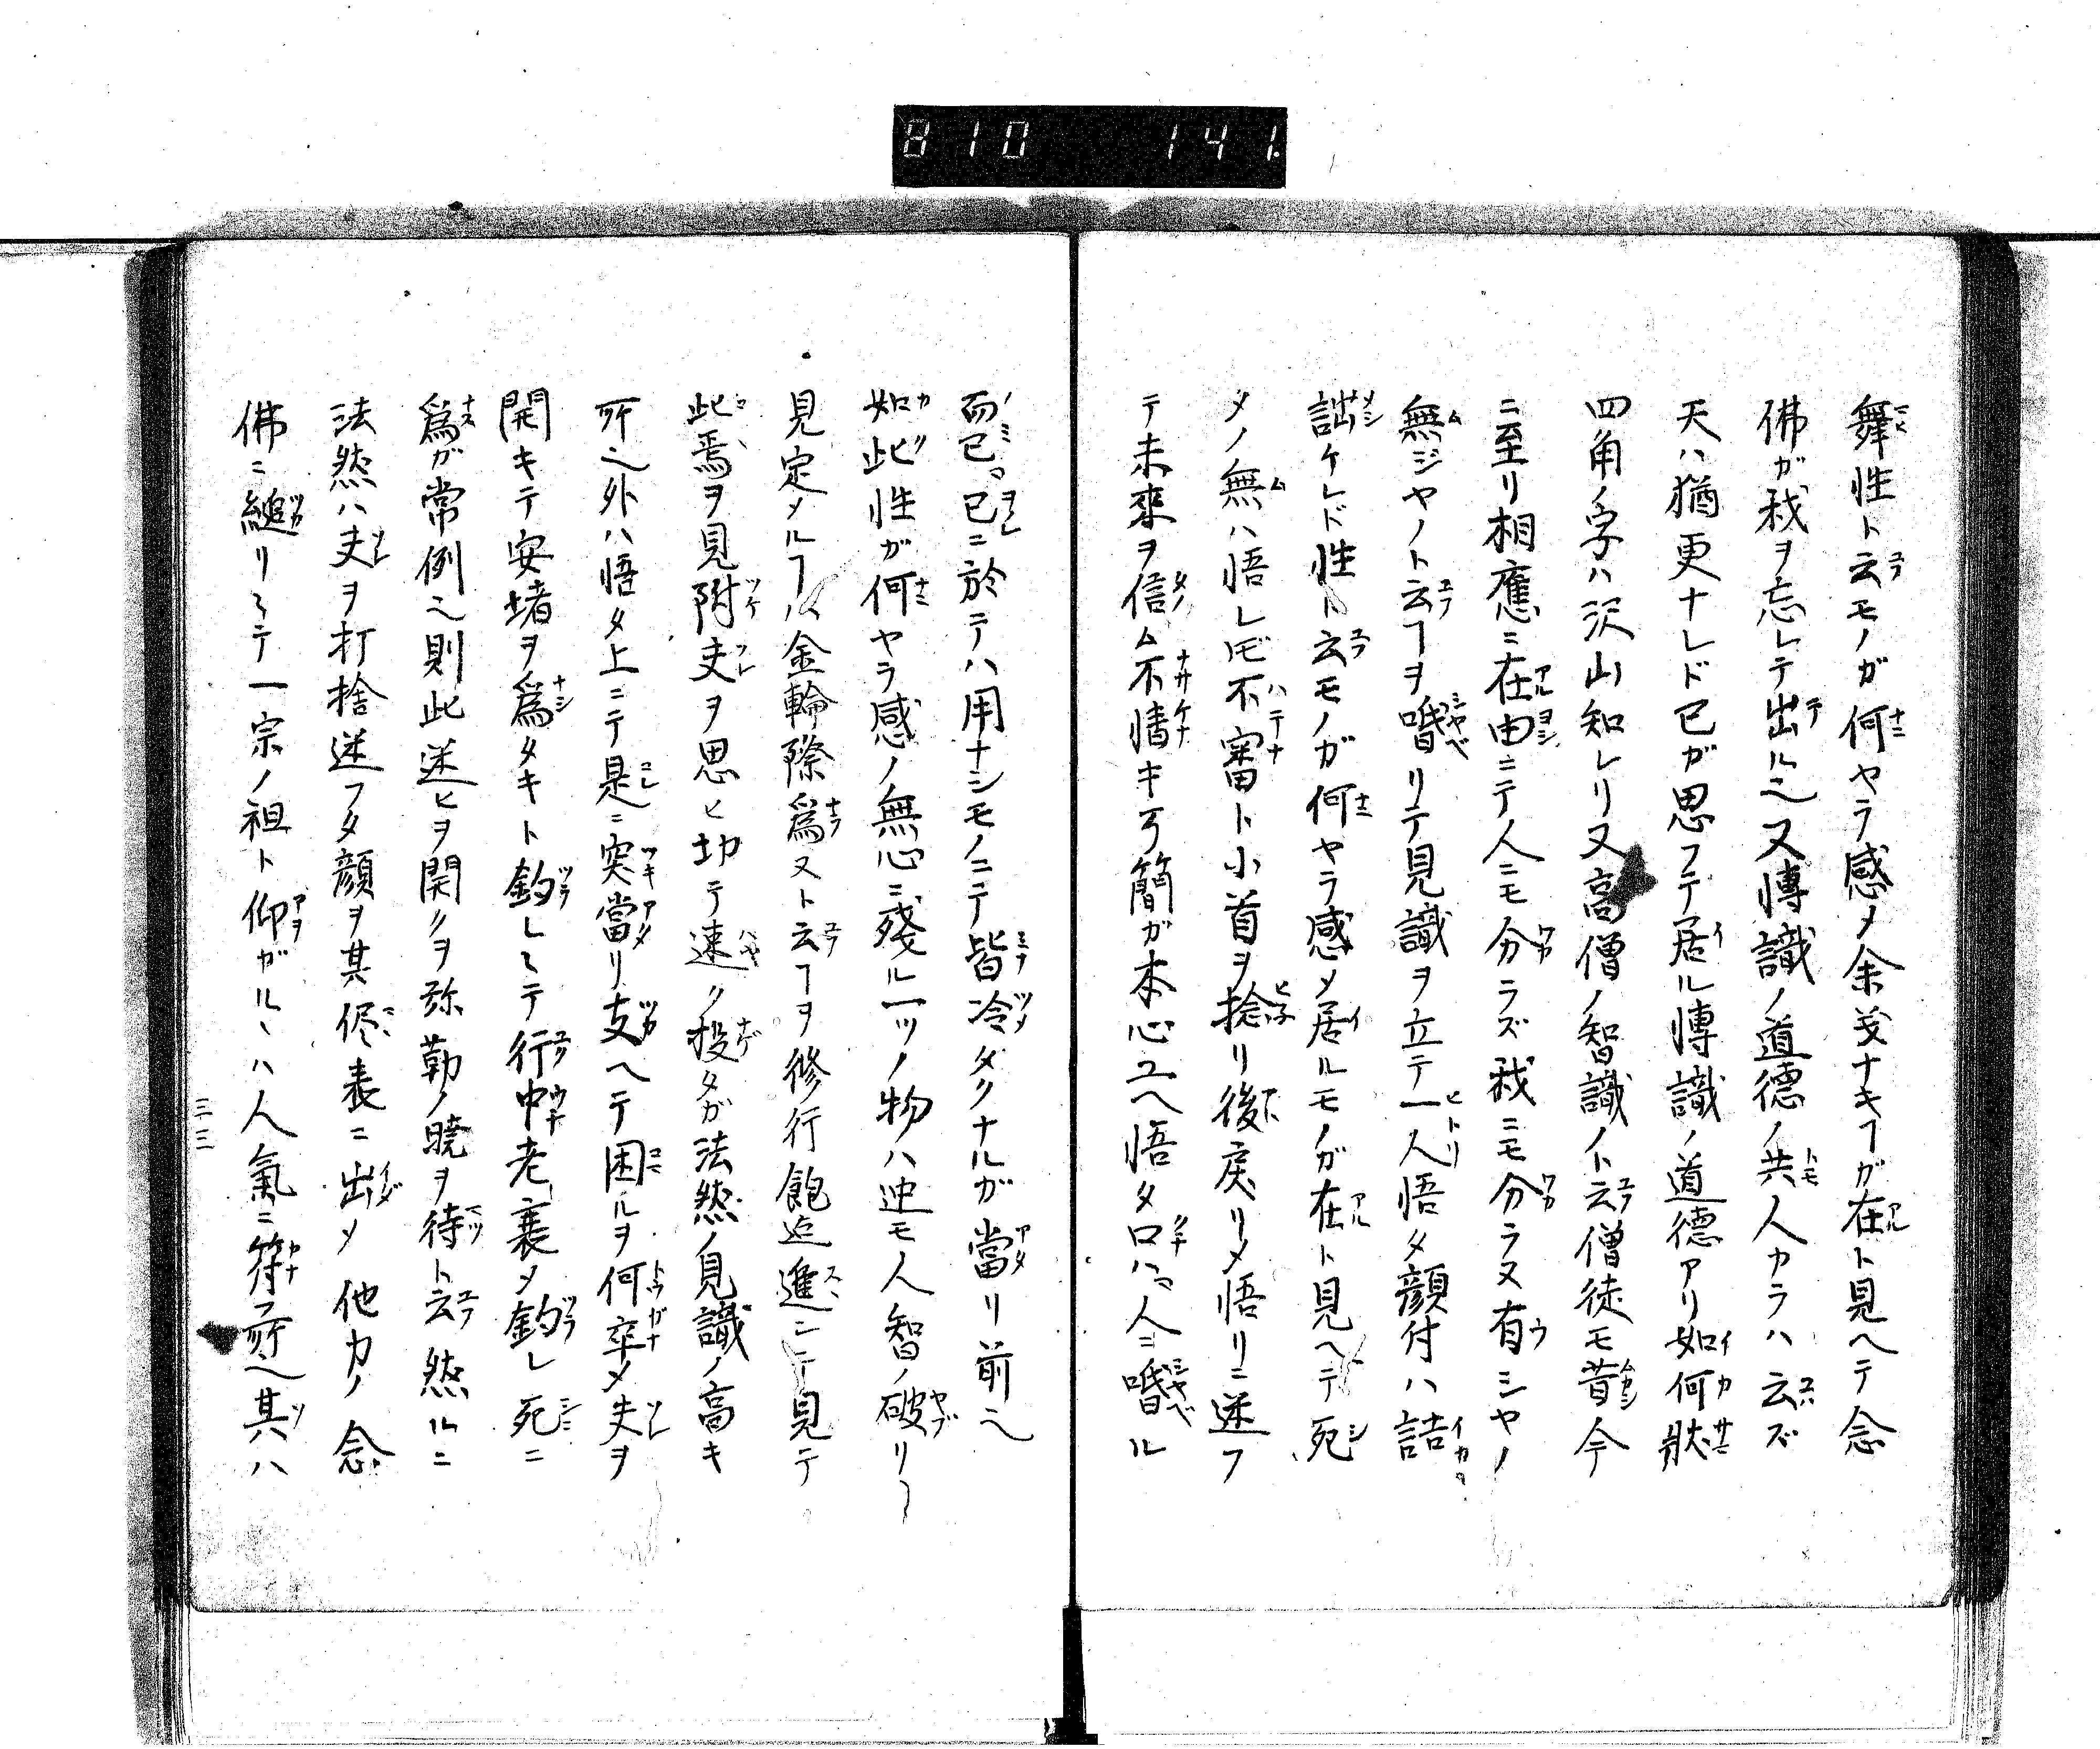 810 141.
舞性ト云モノガ何ヤラ感メ余義ナキヿガ在ト見ヘテ念
佛ガ我ヲ忘レテ出ル也又博識ノ道德ノ共人カラハ云ズ
天ハ猶更ナレド己ガ思フテ居ル博識ノ道德アリ如何狀
四角ノ字ハ沢山知レリ又高僧ノ智識ノト云僧徒モ昔今
ニ至リ相應ニ在由ニテ人ニモ分ラズ我ニモ分ラヌ有シヤノ
無ジヤノト云ヿヲ喋リテ見識ヲ立テ一人悟タ顔付ハ詰
詘ケレド性ト云モノガ何ヤラ感メ居ルモノガ在ト見ヘテ死
メノ無ハ悟レ𪜈不審ト小首ヲ捻リ後戻リメ悟リニ迷フ
テ未來ヲ信ム不情キ了簡ガ本心ユヘ悟タ口ハ人ニ喋ル
而已己ニ於テハ用ナシモノニテ皆冷タクナルガ當リ前也
如此性ガ何ヤラ感ノ無心ニ殘ル一ツノ物ハ迚モ人智ノ破リ〱
見定メルヿハ金輪際爲ヌト云ヿヲ修行飽迄進ンテ見テ
此焉ヲ見附夫ヲ思ヒ切テ速ク投タガ法然ノ見識ノ高キ
所也外ハ悟タ上ニテ是ニ突當リ支ヘテ困ルヲ何卒メ夫ヲ
開キテ安堵ヲ爲タキト釣レ〱テ行中老衰メ釣レ死ニ
爲ガ常例也則此迷ヒヲ開クヲ弥勒ノ曉ヲ待ト云然ルニ
法然ハ夫ヲ打捨迷フタ顔ヲ其侭表ニ出メ他力ノ念
佛ニ縋リ〱テ一宗ノ祖ト仰ガルヽハ人氣ニ符所也其ハ
三三